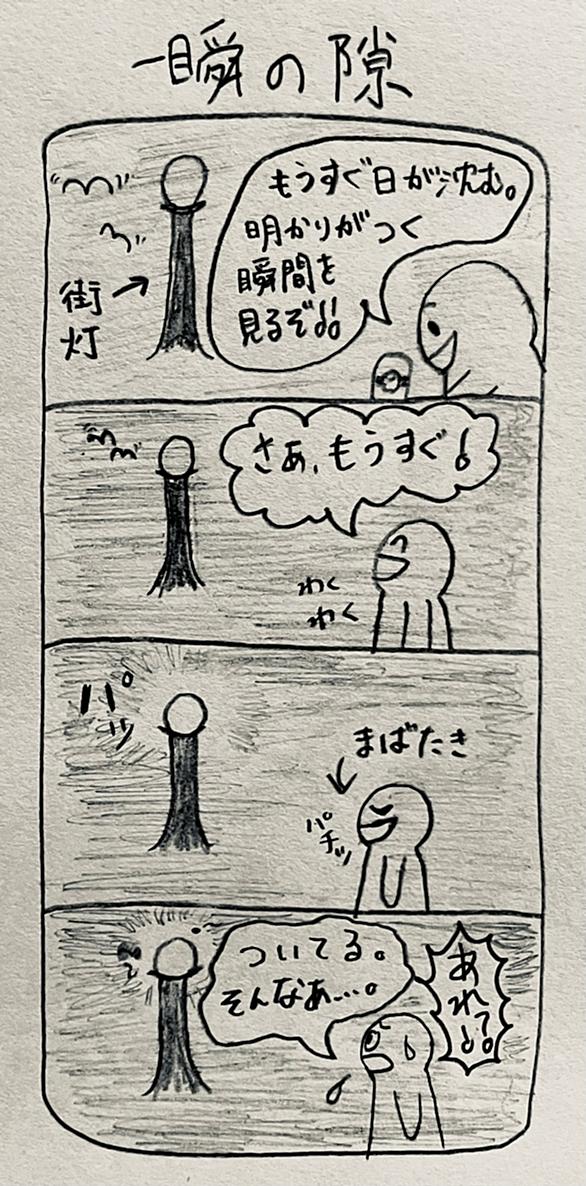 一瞬の隙
もうすぐ日が沈む。
明かりがつく
瞬間を
見るぞ!!
街
灯
さぁ、もうすぐ!
わく
わく
パッ
まばたき
パチッ
あれ!?
ついてる。
そんなあ…。